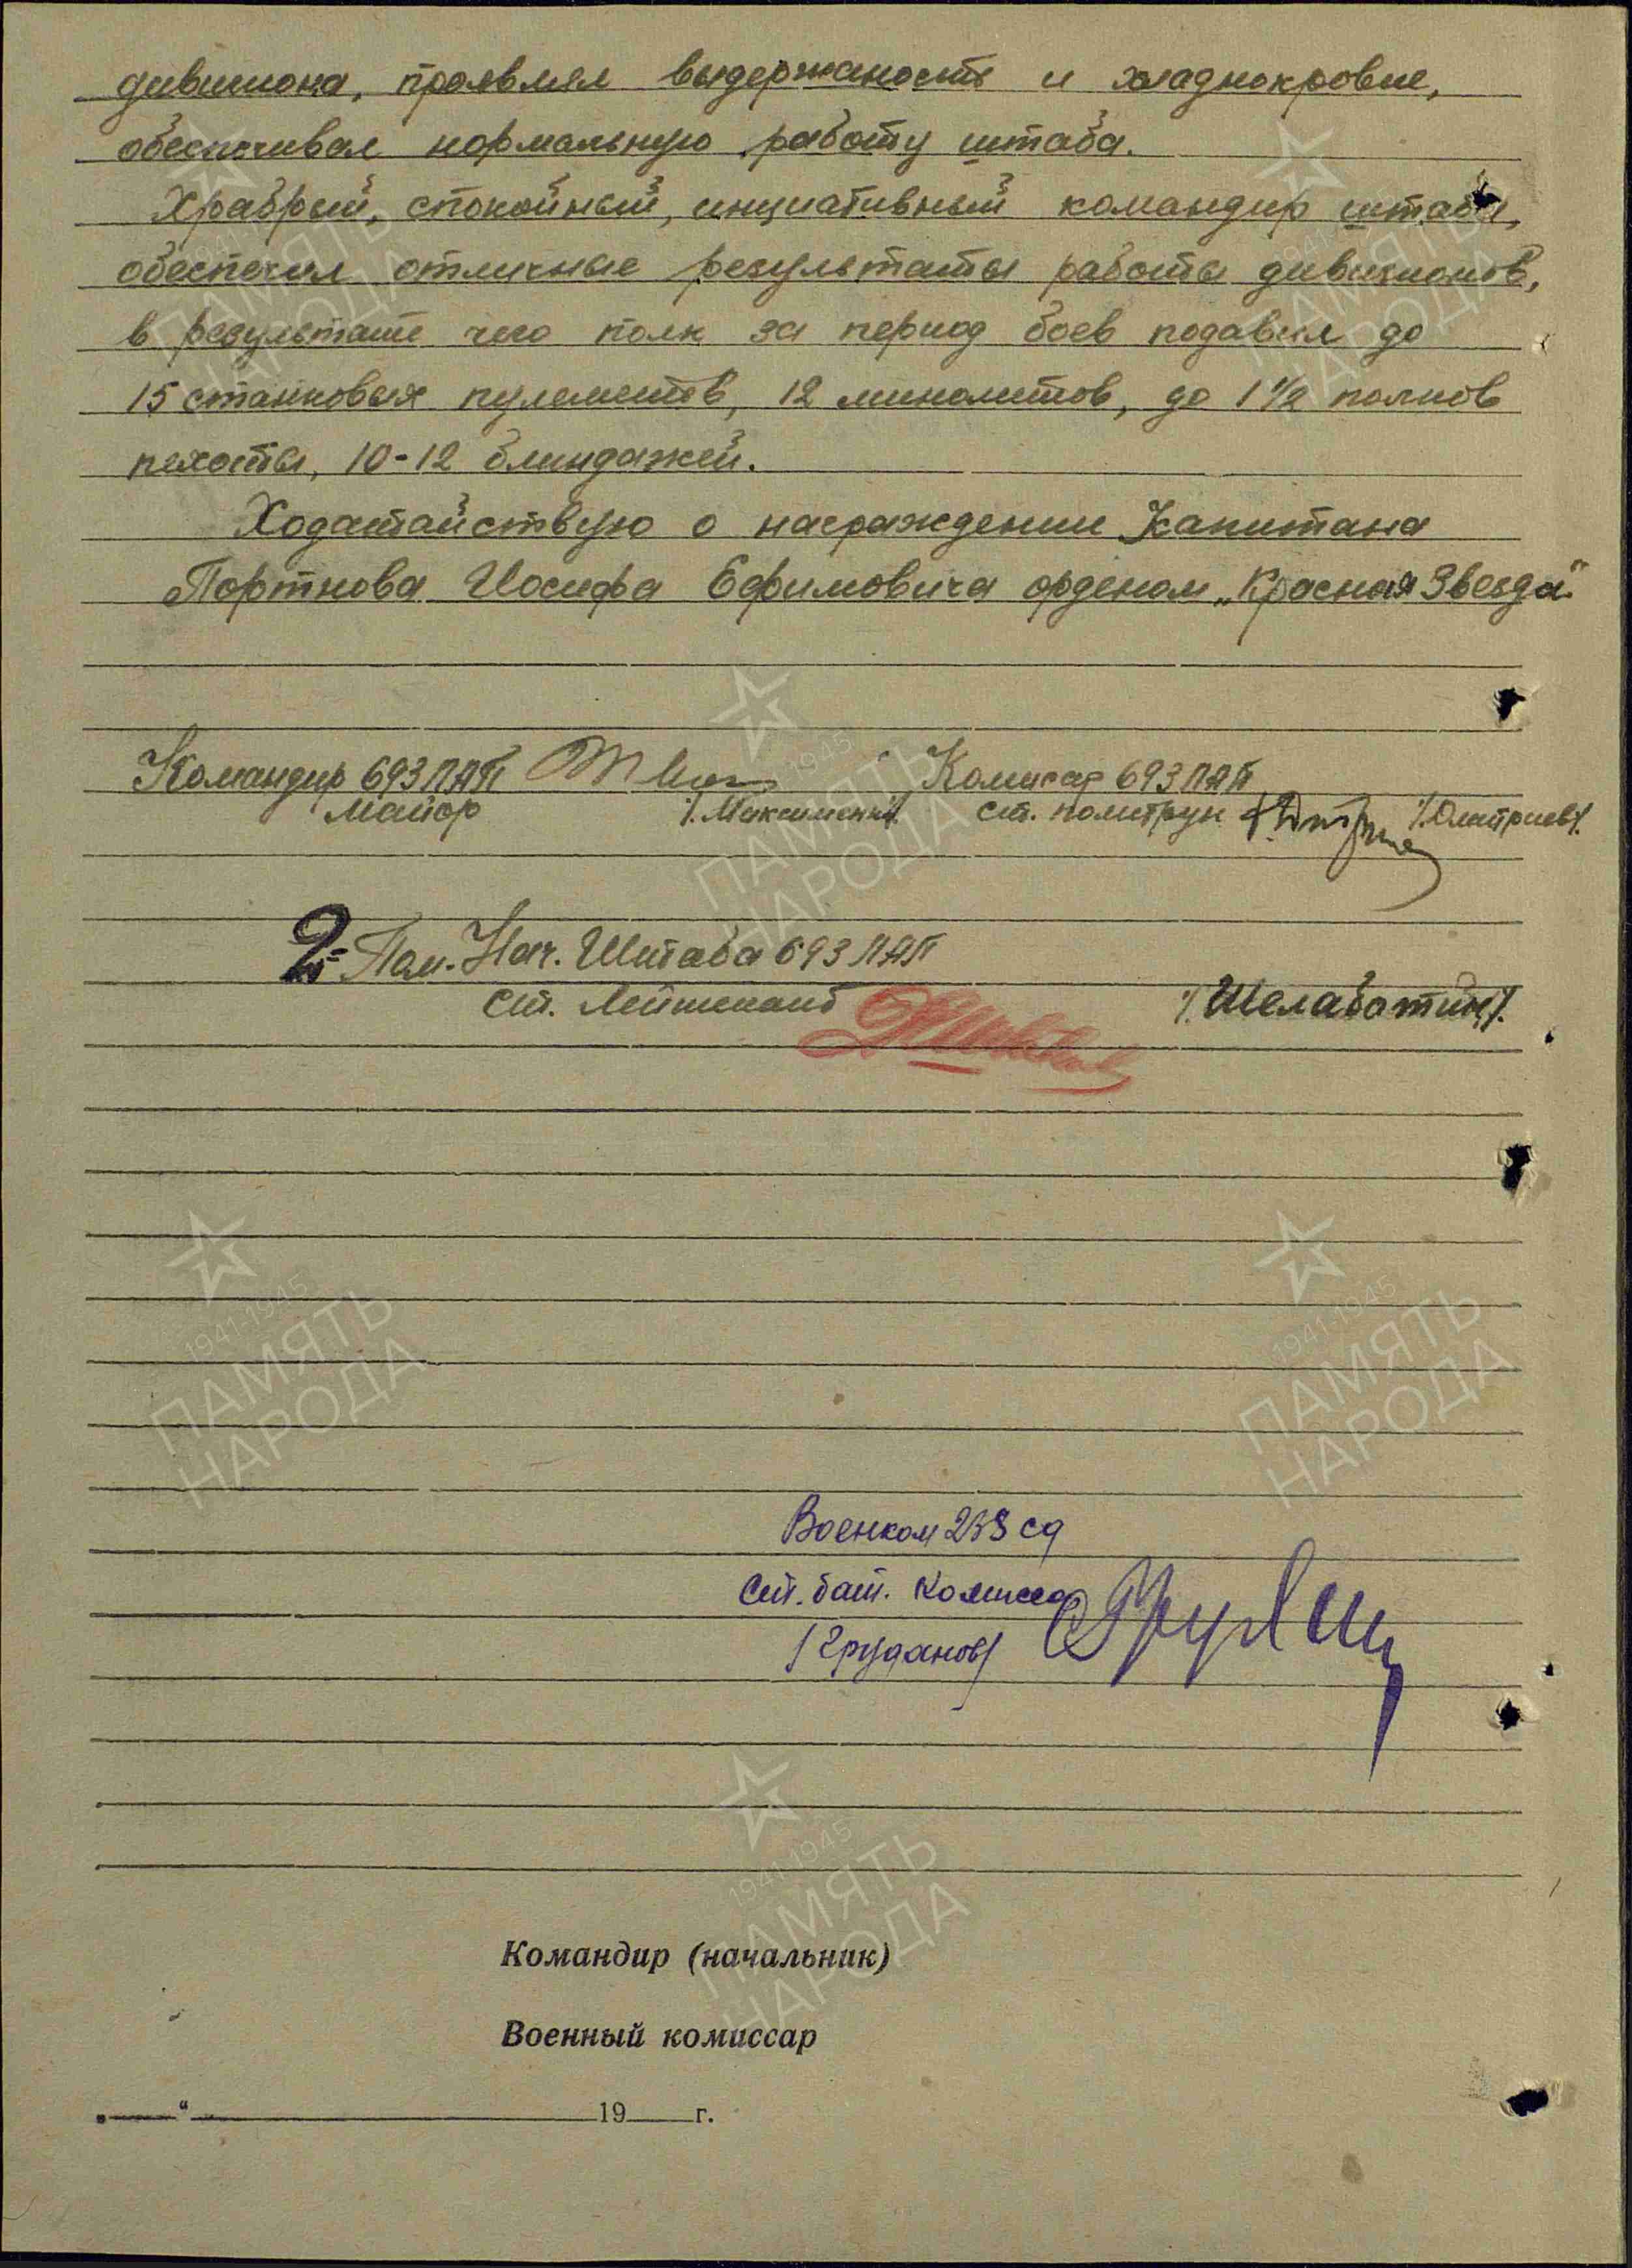 дивизиона, проявлял выдержаность и хладнокровие,
обеспечивал нормальную работу штаба.
Храбрый, спокойный, инциативный командир штаба,
обеспечил отличные результаты работы дивизионов,
в результате чего полк за период боев подавил до
15 станковых пулеметов, 12 минометов, до 1 1/2 полков
пехоты, 10-12 блиндажей.
Ходатайствую о награждении Капитана
Портнова Иосифа Ефимовича орденом „Красная Звезда“
Командир 693 ПАП Комисар 693 ПАП
Майор /.Максименко/. ст. политрук /.Дмитриев/.
2- Пом. Нач. Штаба 693 ПАП
ст. Лейтенант /.Шелаботин/.
Военком 238 сд
Ст. бат. комиссар
/Груданов/
Командир (начальник)
Военный комиссар
„ “ 19 г.
1941-1945
ПАМЯТЬ
НАРОДА